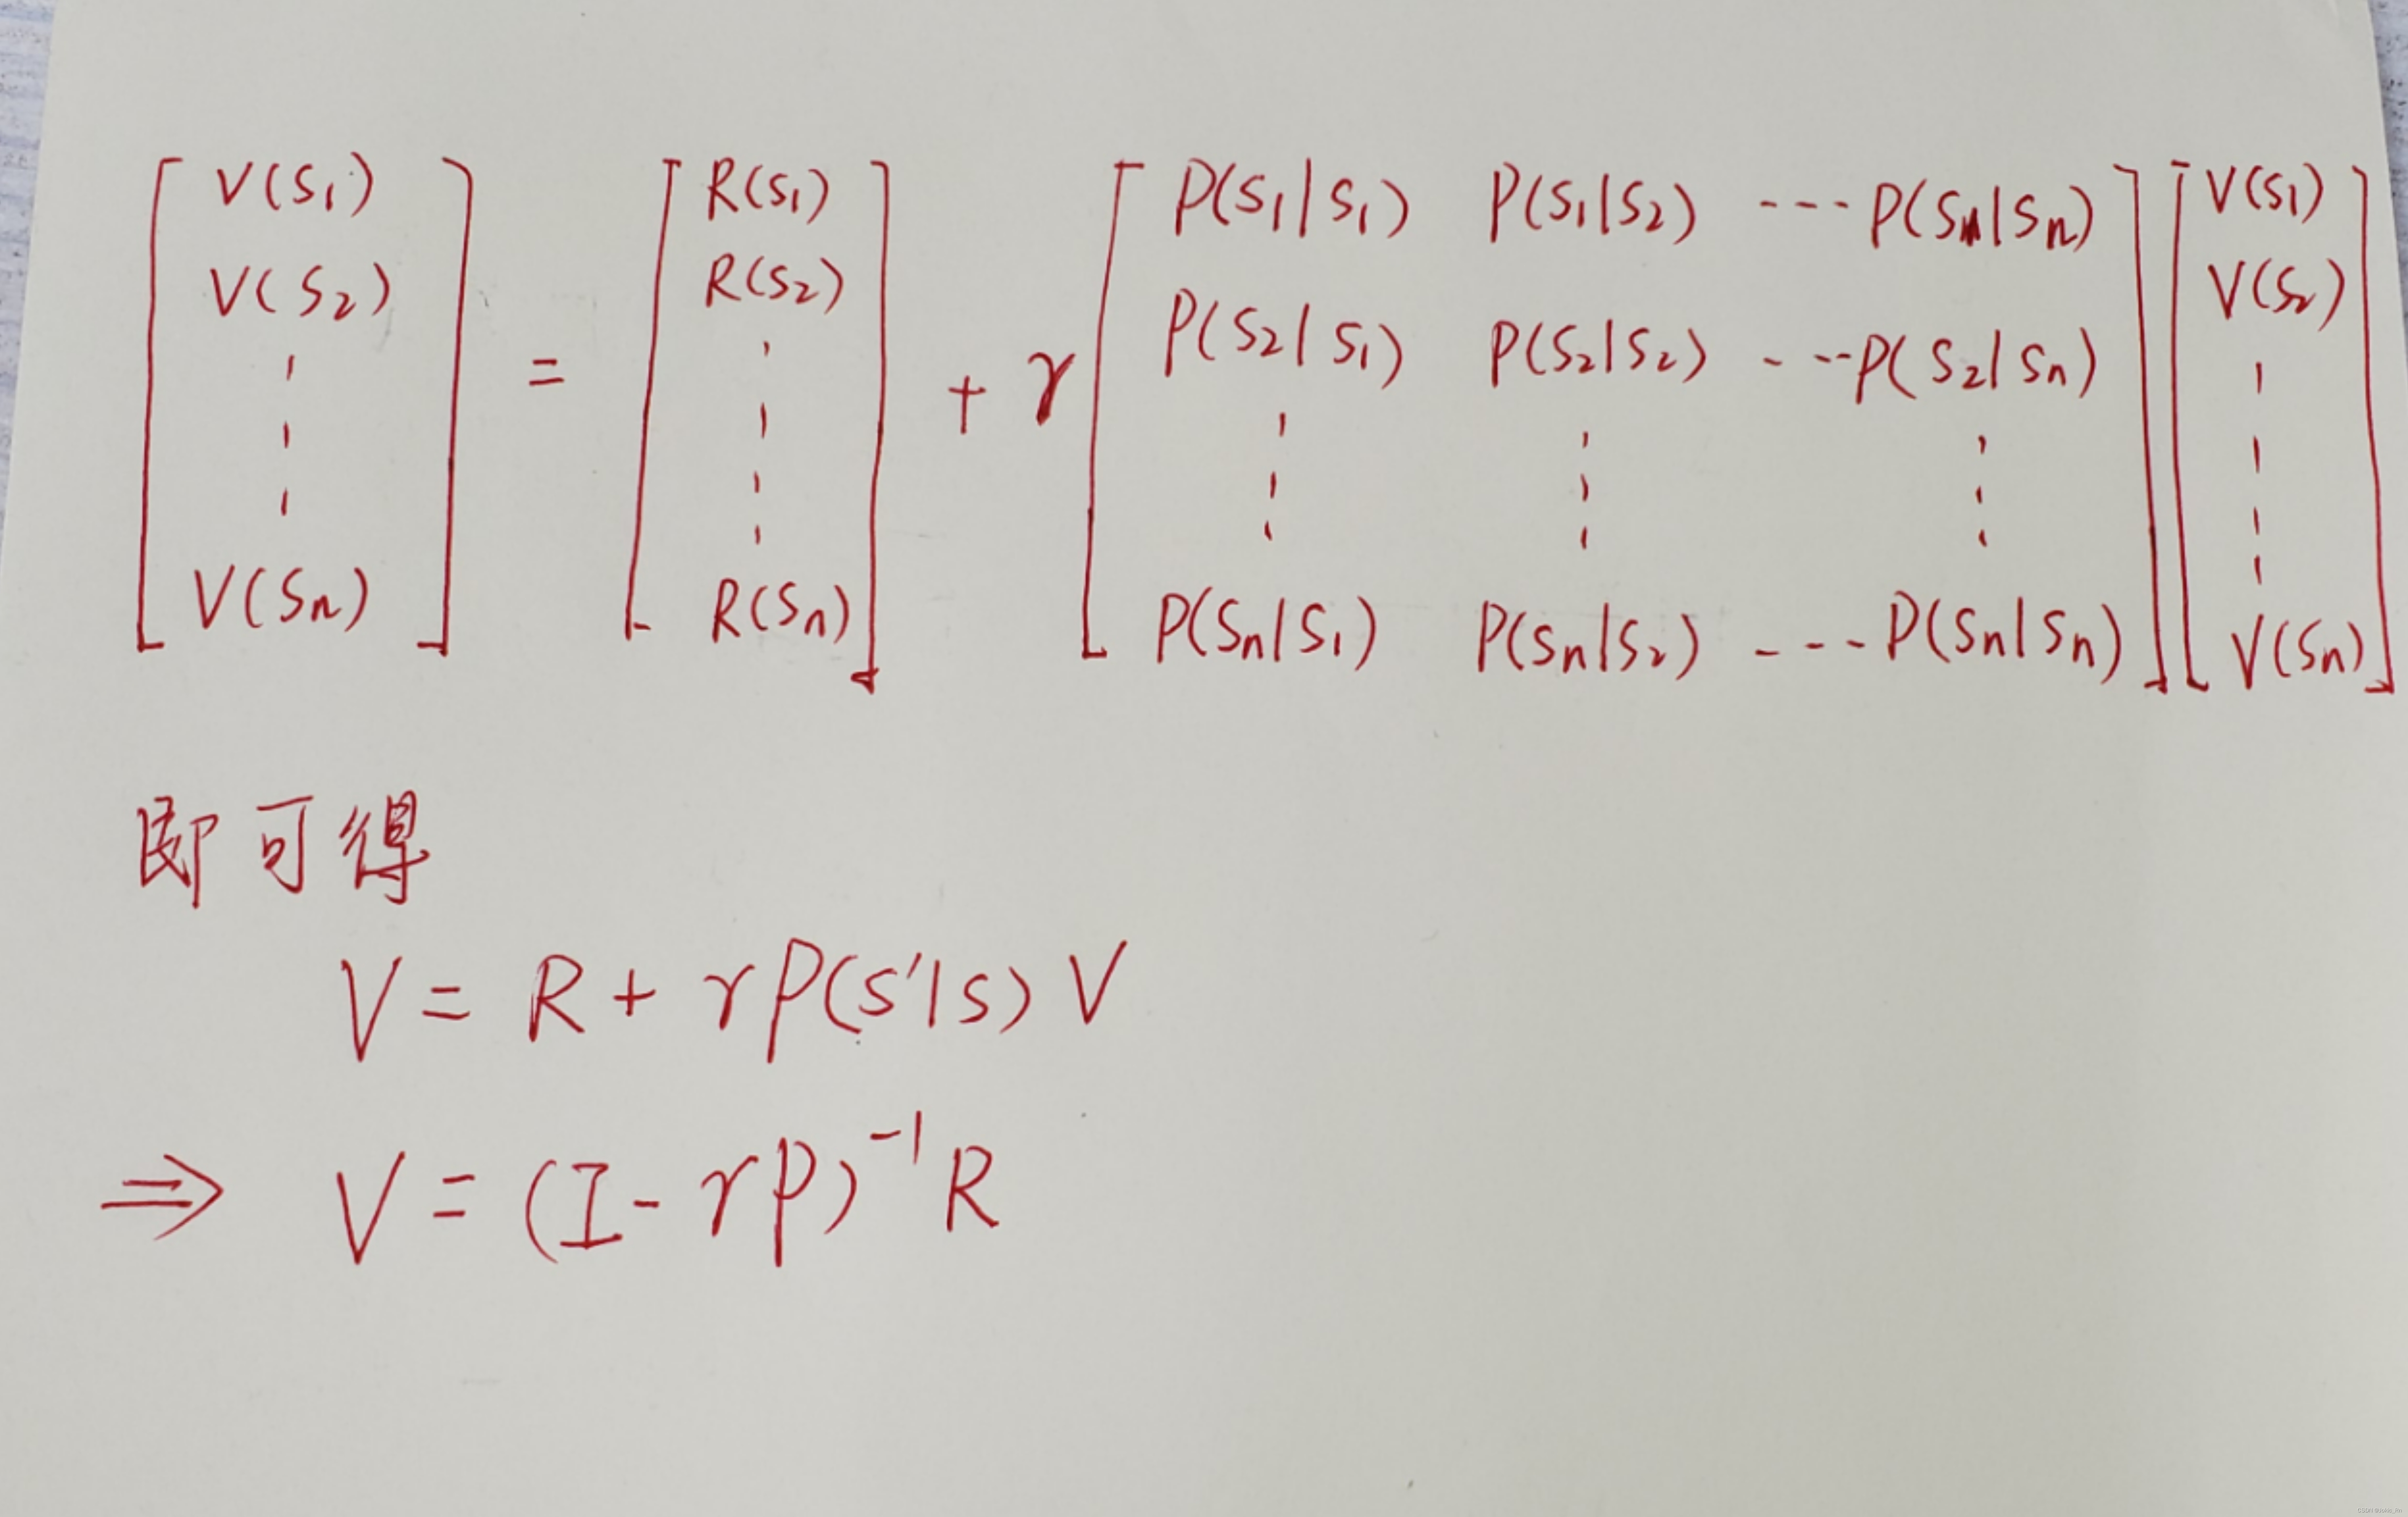 [V(S1) V(S2) ⋮ V(Sn)] = [R(S1) R(S2) ⋮ R(Sn)] + γ [P(S1|S1) P(S1|S2) ---- P(Sn|Sn) ; P(S2|S1) P(S2|S2) ---- P(S2|Sn) ; ⋮ ⋮ ⋮ ; P(Sn|S1) P(Sn|S2) ---- P(Sn|Sn)] [V(S1) V(S2) ⋮ V(Sn)]
即可得
V = R + γP(S'|S) V
⇒ V = (I - γP)^-1 R